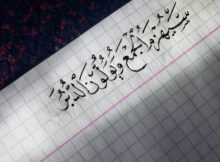 سَيُهْزَمُ الْجَمْعُ وَيُوَلُّونَ الدُّبُرَ